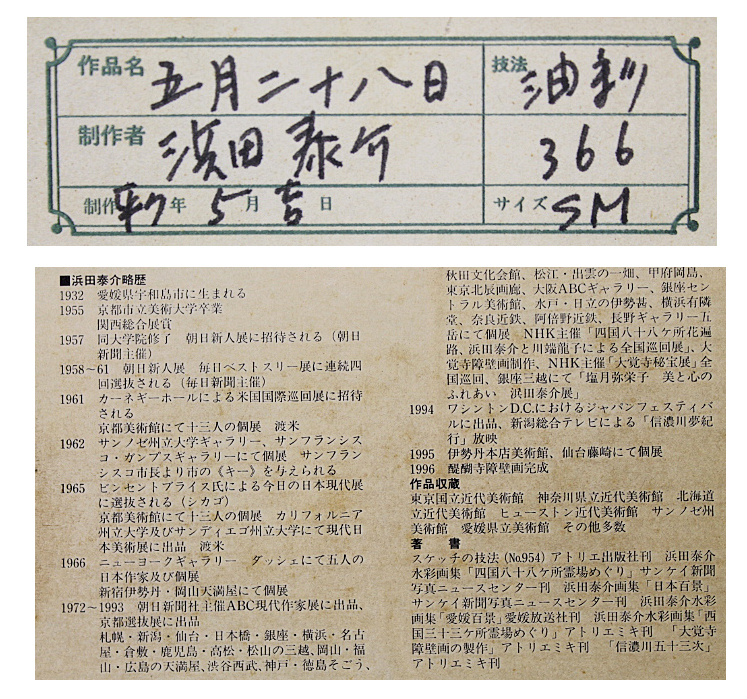 作品名 五月二十八日
技法 油彩
制作者 浜田泰介
366
制作 平7年 5月 吉日
サイズ SM
■浜田泰介略歴
1932 愛媛県宇和島市に生まれる
1955 京都市立美術大学卒業
関西総合展賞
1957 同大学院修了 朝日新人展に招待される（朝日
新聞主催）
1958〜61 朝日新人展 毎日ベストスリー展に連続四
回選抜される（毎日新聞主催）
1961 カーネギーホールによる米国国際巡回展に招待
される
京都美術館にて十三人の個展 渡米
1962 サンノゼ州立大学ギャラリー、サンフランシス
コ・ガンプスギャラリーにて個展 サンフラン
シスコ市長より市の《キー》を与えられる
1965 ビンセントプライス氏による今日の日本現代展
に選抜される（シカゴ）
京都美術館にて十三人の個展 カリフォルニア
州立大学及びサンディエゴ州立大学にて現代日
本美術展に出品 渡米
1966 ニューヨークギャラリー ダッシェにて五人の
日本作家及び個展
新宿伊勢丹・岡山天満屋にて個展
1972〜1993 朝日新聞社主催ABC現代作家展に出品、
京都選抜展に出品
札幌・新潟・仙台・日本橋・銀座・横浜・名古
屋・倉敷・鹿児島・高松・松山の三越、岡山・福
山・広島の天満屋、渋谷西武、神戸・徳島そごう、
秋田文化会館、松江・出雲の一畑、甲府岡島、
東京北辰画廊、大阪ABCギャラリー、銀座セン
トラル美術館、水戸・日立の伊勢甚、横浜有隣
堂、奈良近鉄、阿倍野近鉄、長野ギャラリー五
岳にて個展 NHK主催「四国八十八ケ所花遍
路、浜田泰介と川端龍子による全国巡回展」、大
覚寺障壁画制作、NHK主催「大覚寺秘宝展」全
国巡回、銀座三越にて「塩月弥栄子 美と心の
ふれあい 浜田泰介展」
1994 ワシントンD.C.におけるジャパンフェスティバ
ルに出品、新潟総合テレビによる「信濃川夢紀
行」放映
1995 伊勢丹本店美術館、仙台藤崎にて個展
1996 醍醐寺障壁画完成
作品収蔵
東京国立近代美術館 神奈川県立近代美術館 北海道
立近代美術館 ヒューストン近代美術館 サンノゼ州
美術館 愛媛県立美術館 その他多数
著 書
スケッチの技法（No.954）アトリエ出版社刊 浜田泰介
水彩画集「四国八十八ケ所霊場めぐり」サンケイ新聞
写真ニュースセンター刊 浜田泰介画集「日本百景」
サンケイ新聞写真ニュースセンター刊 浜田泰介水彩
画集「愛媛百景」愛媛放送社刊 浜田泰介水彩画集「西
国三十三ケ所霊場めぐり」アトリエミキ刊 「大覚寺
障壁画の製作」アトリエミキ刊 「信濃川五十三次」
アトリエミキ刊